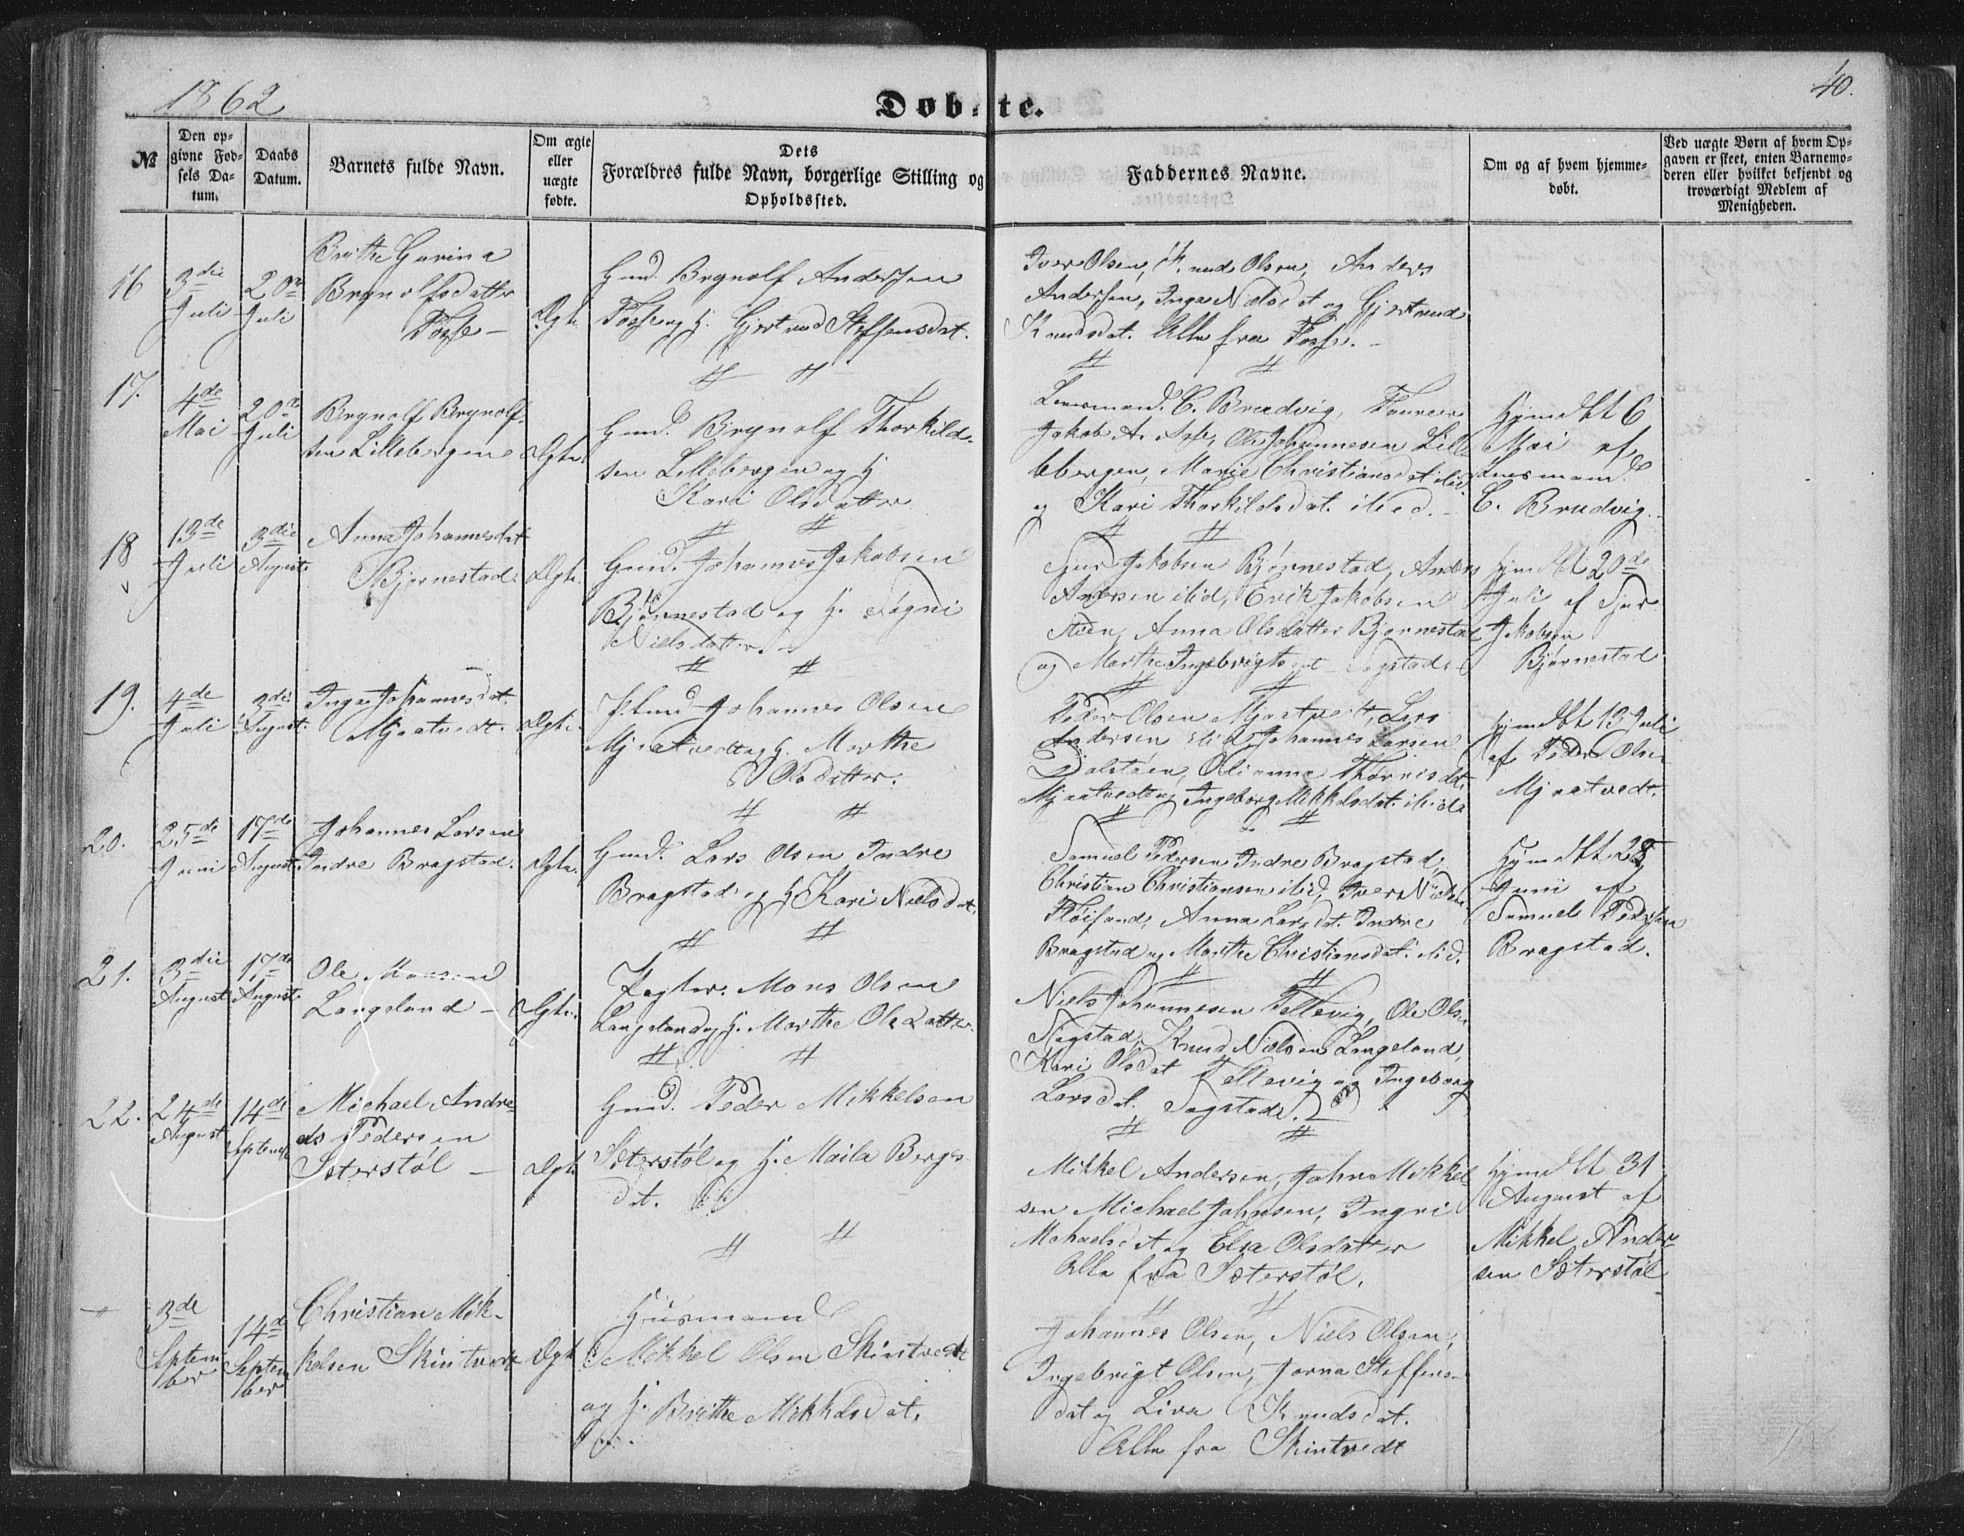 1862
Døbte.
40.
№
Den op-
givne Fød-
sels Da-
tum.
Daabs
Datum.
Barnets fulde Navn.
Om ægte
eller
uægte
fødte.
Dets
Forældres fulde Navn, borgerlige Stilling og
Opholdssted.
Faddernes Navne.
Om og af hvem hjemme-
døbt.
Ved uægte Børn af hvem Op-
gaven er skeet, enten Barnemo-
deren eller hvilket bekjendt og
troværdigt Medlem af
Menigheden.
16
3die
Juli
20de
Juli
Brithe Gurina
Brynolfsdatter
Fosse
Ægte
Gmd. Brynolf Andersen
Fosse og H. Gjertrud Steffensdat.
Iver Olsen, Knud Olsen, Anders
Andersen, Inga Nielsdat og Gjertrud
Knudsdat. Alle fra Fosse.
17.
4de
Mai
20de
Juli
Brynolf Brynolf-
sen Lillebergen
Ægte
Gmd. Brynolf Thorkild-
sen Lillebergen og H
Kari Olsdatter
Lensmand C. Brudvig,
Jakob A. Ole Johannesen Lill
ebergen, Marie Christiansdat ibid
og Kari Thorkildsdat. ibid.
Hjmdbt 6
Mai af
Lensmand
C. Brudvig.
18
13de
Juli
3die
August
Anna Johannesdat
Bjørnestad.
Ægte.
Gmd. Johannes Jakobsen
Bjørnestad og H. Søgni
Nielsdatter.
Sjur Jakobsen Bjørnestad, Anders
Andersen ibid, Erik Jakobsen
Anna Olsdatter Bjørnestad
og Marthe Ingebrigtsdat Sagstad.
Hjmdbt 20de
Juli af Sjur
Jakobsen
Bjørnestad
19.
4de
Juli
3die
August.
Inga Johannesdat.
Mjaatvedt.
Ægte.
Johannes Olsen
Mjaatvedt og H. Marthe
Olsdatter.
Peder Olsen Mjaatvedt, Lars
Andersen ibid, Johannes Larsen
Dalstøen, Olianna
Mjaatvedt og Ingeborg Mikkelsdat. ibid
Hjmdbt 13 Juli
af Peder Olsen
Mjaatvedt.
20.
25de
Juni
17de
August
Johannes Larsen
Indre Bragstad.
Ægte.
Gmd. Lars Olsen Indre
Bragstad og H Kari Nielsdat.
Samuel Pedersen Indre Bragstad,
Christian Christiansen ibid, Iver Nielsen
Anna Larsdat. Indre
Bragstad og Marthe Christiansdat. ibid.
Hjmdbt 28
Juni af
Samuel Pedersen
Bragstad.
21.
3die
August
17de
August.
Ole Monsen
Langeland
Ægte.
Mons Olsen
Langeland og H. Marthe Olsdatter
Niels Johannesen Tellevig, Ole Olsen
Sagstad, Knud Nielsen Langeland,
Kari Olsdat Tellevig og Ingeborg
Larsdat. Sagstad.
22.
24de
August
14de
September
Michael Andre
as Pedersen
Sæterstøl
Ægte
Gmd. Peder Mikkelsen
Sæterstøl og H. Maila Berges
dat.
Mikkel Andersen, John Mikkel-
sen Michael Johnsen, Ingri
Michaelsdat og Elsa Olsdatter
Alle fra Sæterstøl.
Hjmdbt 31
August af
Mikkel Ander-
sen Sæterstøl
3de
Septem
ber
14de
Septem
ber
Christian Mik-
kelsen Skintvedt
Ægte
Husmand
Mikkel Olsen Skintvedt
og H. Brithe Mikkelsdat.
Johannes Olsen, Niels Olsen,
Ingebrigt Olsen, Jorna Steffens-
dat og Liva Knudsdat.
Alle fra Skintvedt